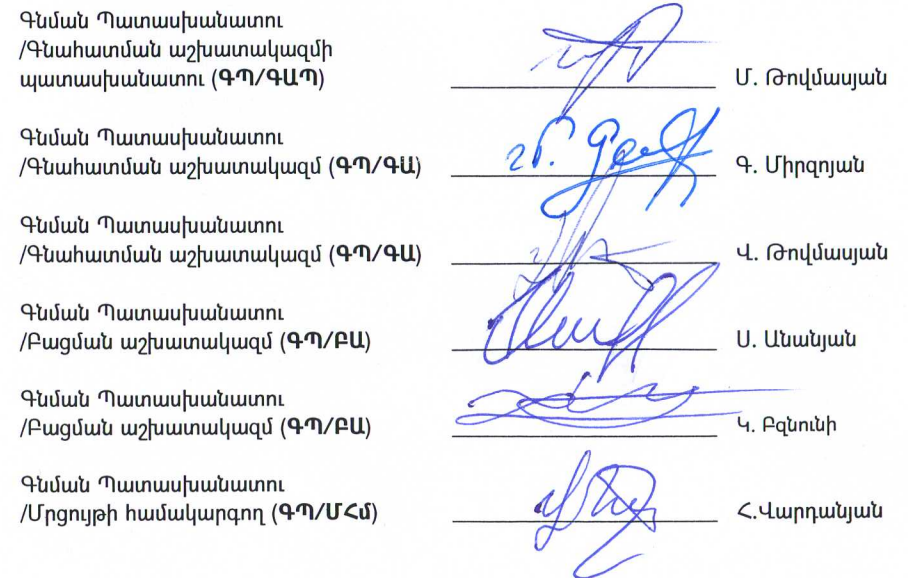 Գնման Պատասխանատու
/Գնահատման աշխատակազմի
պատասխանատու (ԳՊ/ԳԱՊ) Մ. Թովմասյան
Գնման Պատասխանատու
/Գնահատման աշխատակազմ (ԳՊ/ԳԱ) Գ. Միրզոյան
Գնման Պատասխանատու
/Գնահատման աշխատակազմ (ԳՊ/ԳԱ) Վ. Թովմասյան
Գնման Պատասխանատու
/Բացման աշխատակազմ (ԳՊ/ԲԱ) Ս. Անանյան
Գնման Պատասխանատու
/Բացման աշխատակազմ (ԳՊ/ԲԱ) Կ. Բզնունի
Գնման Պատասխանատու
/Մրցույթի համակարգող (ԳՊ/ՄՀմ) Հ.Վարդանյան